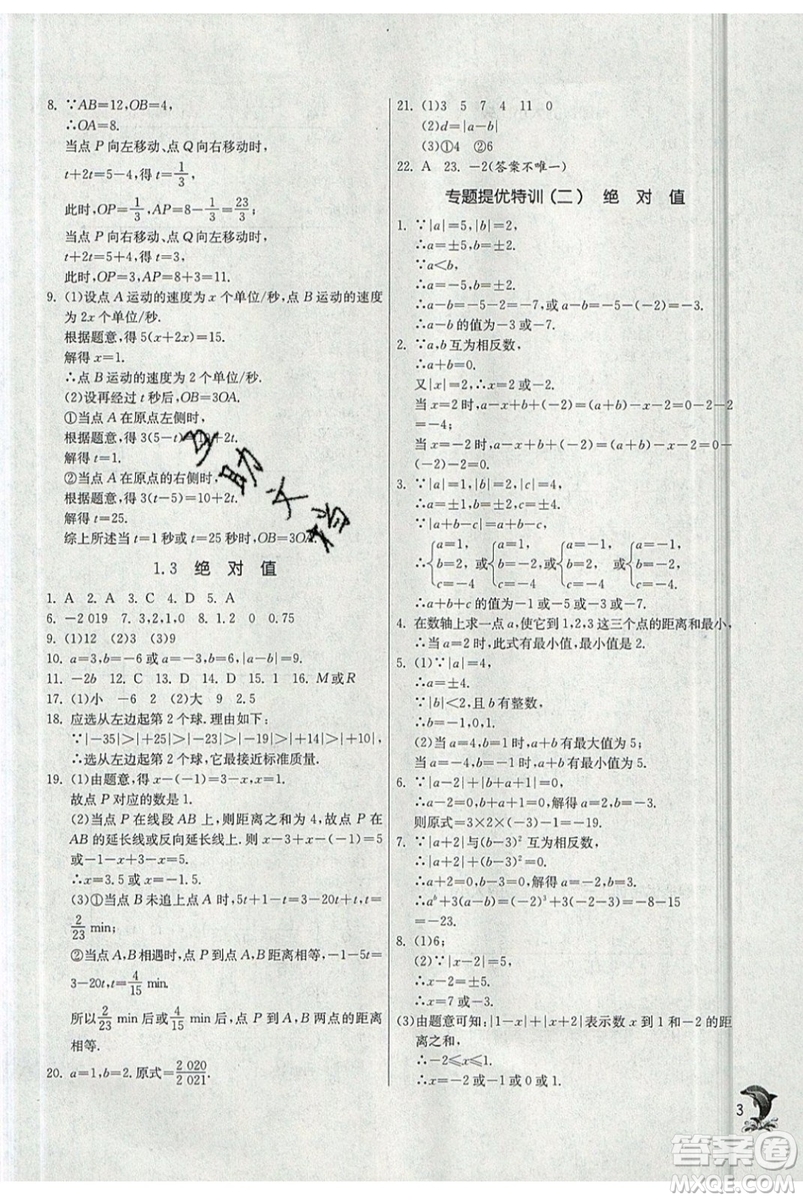 8. ∵AB=12,OB=4,
∴OA=8.
当点 P 向左移动、点 Q 向右移动时,
t+2t=5-4,得 t=1/3,
此时,OP=1/3,AP=8-1/3=23/3;
当点 P 向右移动、点 Q 向左移动时,
t+2t=5+4,得 t=3,
此时,OP=3,AP=8+3=11.
9. (1)设点 A 运动的速度为 x 个单位/秒,点 B 运动的速度
为 2x 个单位/秒.
根据题意,得 5(x+2x)=15.
解得 x=1.
∴点 B 运动的速度为 2 个单位/秒.
(2)设再经过 t 秒后,OB=3OA.
①当点 A 在原点左侧时,
根据题意,得 3(5-t)=10+2t.
解得 t=1.
②当点 A 在原点的右侧时,
根据题意,得 3(t-5)=10+2t.
解得 t=25.
综上所述当 t=1 秒或 t=25 秒时,OB=3OA.
1.3 绝对值
1. A 2. A 3. C 4. D 5. A
6. -2 019 7. 3,2,1,0 8. 1.2 0 0.75
9. (1)12 (2)3 (3)9
10. a=3,b=-6 或 a=-3,b=-6.∴|a-b|=9.
11. -2b 12. A 13. D 14. D 15. 1 16. M或R
17. (1)小 -6 2 (2)大 9 2.5
18. 应选从左边起第 2 个球. 理由如下:
∵|-35|>|+25|>|-23|>|-20|>|+13|>|+10|,
∴选从左边起第 2 个球,它最接近标准质量.
19. (1)由题意,得 x-(-1)=3-x,x=1.
故点 P 对应的数是 1.
(2)当点 P 在线段 AB 上,则距离之和为 4,故点 P 在
AB 的延长线或反向延长线上. 则 x-3+x-(-1)=5
或-1-x+3-x=5.
∴x=3.5 或 x=-1.5.
(3)①当点 B 未追上点 A 时,5t+1-t=3-20t+t,t=
2/23 min;
②当点 A,B 相遇时,点 P 到点 A,B 距离相等,-1-5t
=3-20t,t=4/15 min.
所以 2/23 min 或 4/15 min 时点 P 到 A、B 两点的距离
相等.
20. a=1,b=2. 原式=2 020/2 021.
21. (1)3 5 7 4 11 0
(2)d=|a-b|
(3)①4 ②6
22. A 23. -2(答案不唯一)
专题提优特训(二) 绝对值
1. ∵|a|=5,|b|=2,
∴a=±5,b=±2.
∵a<b,
∴a=-5,b=±2,
∴a-b=-5-2=-7或a-b=-5-(-2)=-3.
∴a-b 的值为-3 或-7.
2. ∵a,b 互为相反数,
∴a+b=0.
又|x|=2,∴x=±2.
当 x=2 时,a-x+b+(-2)=(a+b)-x-2=0-2-2
=-4;
当 x=-2 时,a-x+b+(-2)=(a+b)-x-2=0+
2-2=0.
3. ∵|a|=1,|b|=2,|c|=4,
∴a=±1,b=±2,c=±4.
∵|a+b-c|=a+b-c,
∴{a=1,b=2,c=-4 或{a=1,b=-2,c=-4 或{a=-1,b=2,c=-4 或{a=-1,b=-2,c=-4.
∴a+b+c=-1 或-5 或-3 或-7.
4. 在数轴上求一点 a,使它到 1,2,3 这三个点的距离和最小,
∴当 a=2 时,此式有最小值,最小值是 2.
5. (1)∵|a|=4,
∴a=±4.
∵|b|<2,且 b 有整数,
∴b=-1,0,1.
(2)当 a=4,b=1 时,a+b 有最大值为 5;
当 a=-4,b=1 时,a-b 有最小值为-5.
6. ∵|a-2|+|b-3|+|c-4|=0,
∴a-2=0,b-3=0,c-4=0,解得 a=2,b=3,c=4.
则原式=3×2×(-1)-4-9=-19.
7. ∵|a+2|与(b-3)² 互为相反数,
∴|a+2|+(b-3)²=0.
∴a+2=0,b-3=0,解得 a=-2,b=3.
∴aᵇ+3(a-b)=(-2)³+3(-2-3)=-8-15=
-23.
8. (1)6;
(2)∵|x-2|=5,
∴x-2=5 或 x-2=-5,
∴x=7 或 x=-3.
(3)由题意可知:|1-x|+|x+2|表示数 x 到 1 和-2 的距
离之和,
∴-2⩽x⩽1,
∴x=-2 或-1 或 0 或 1.
3
互助文档
答案圈
MXQE.COM